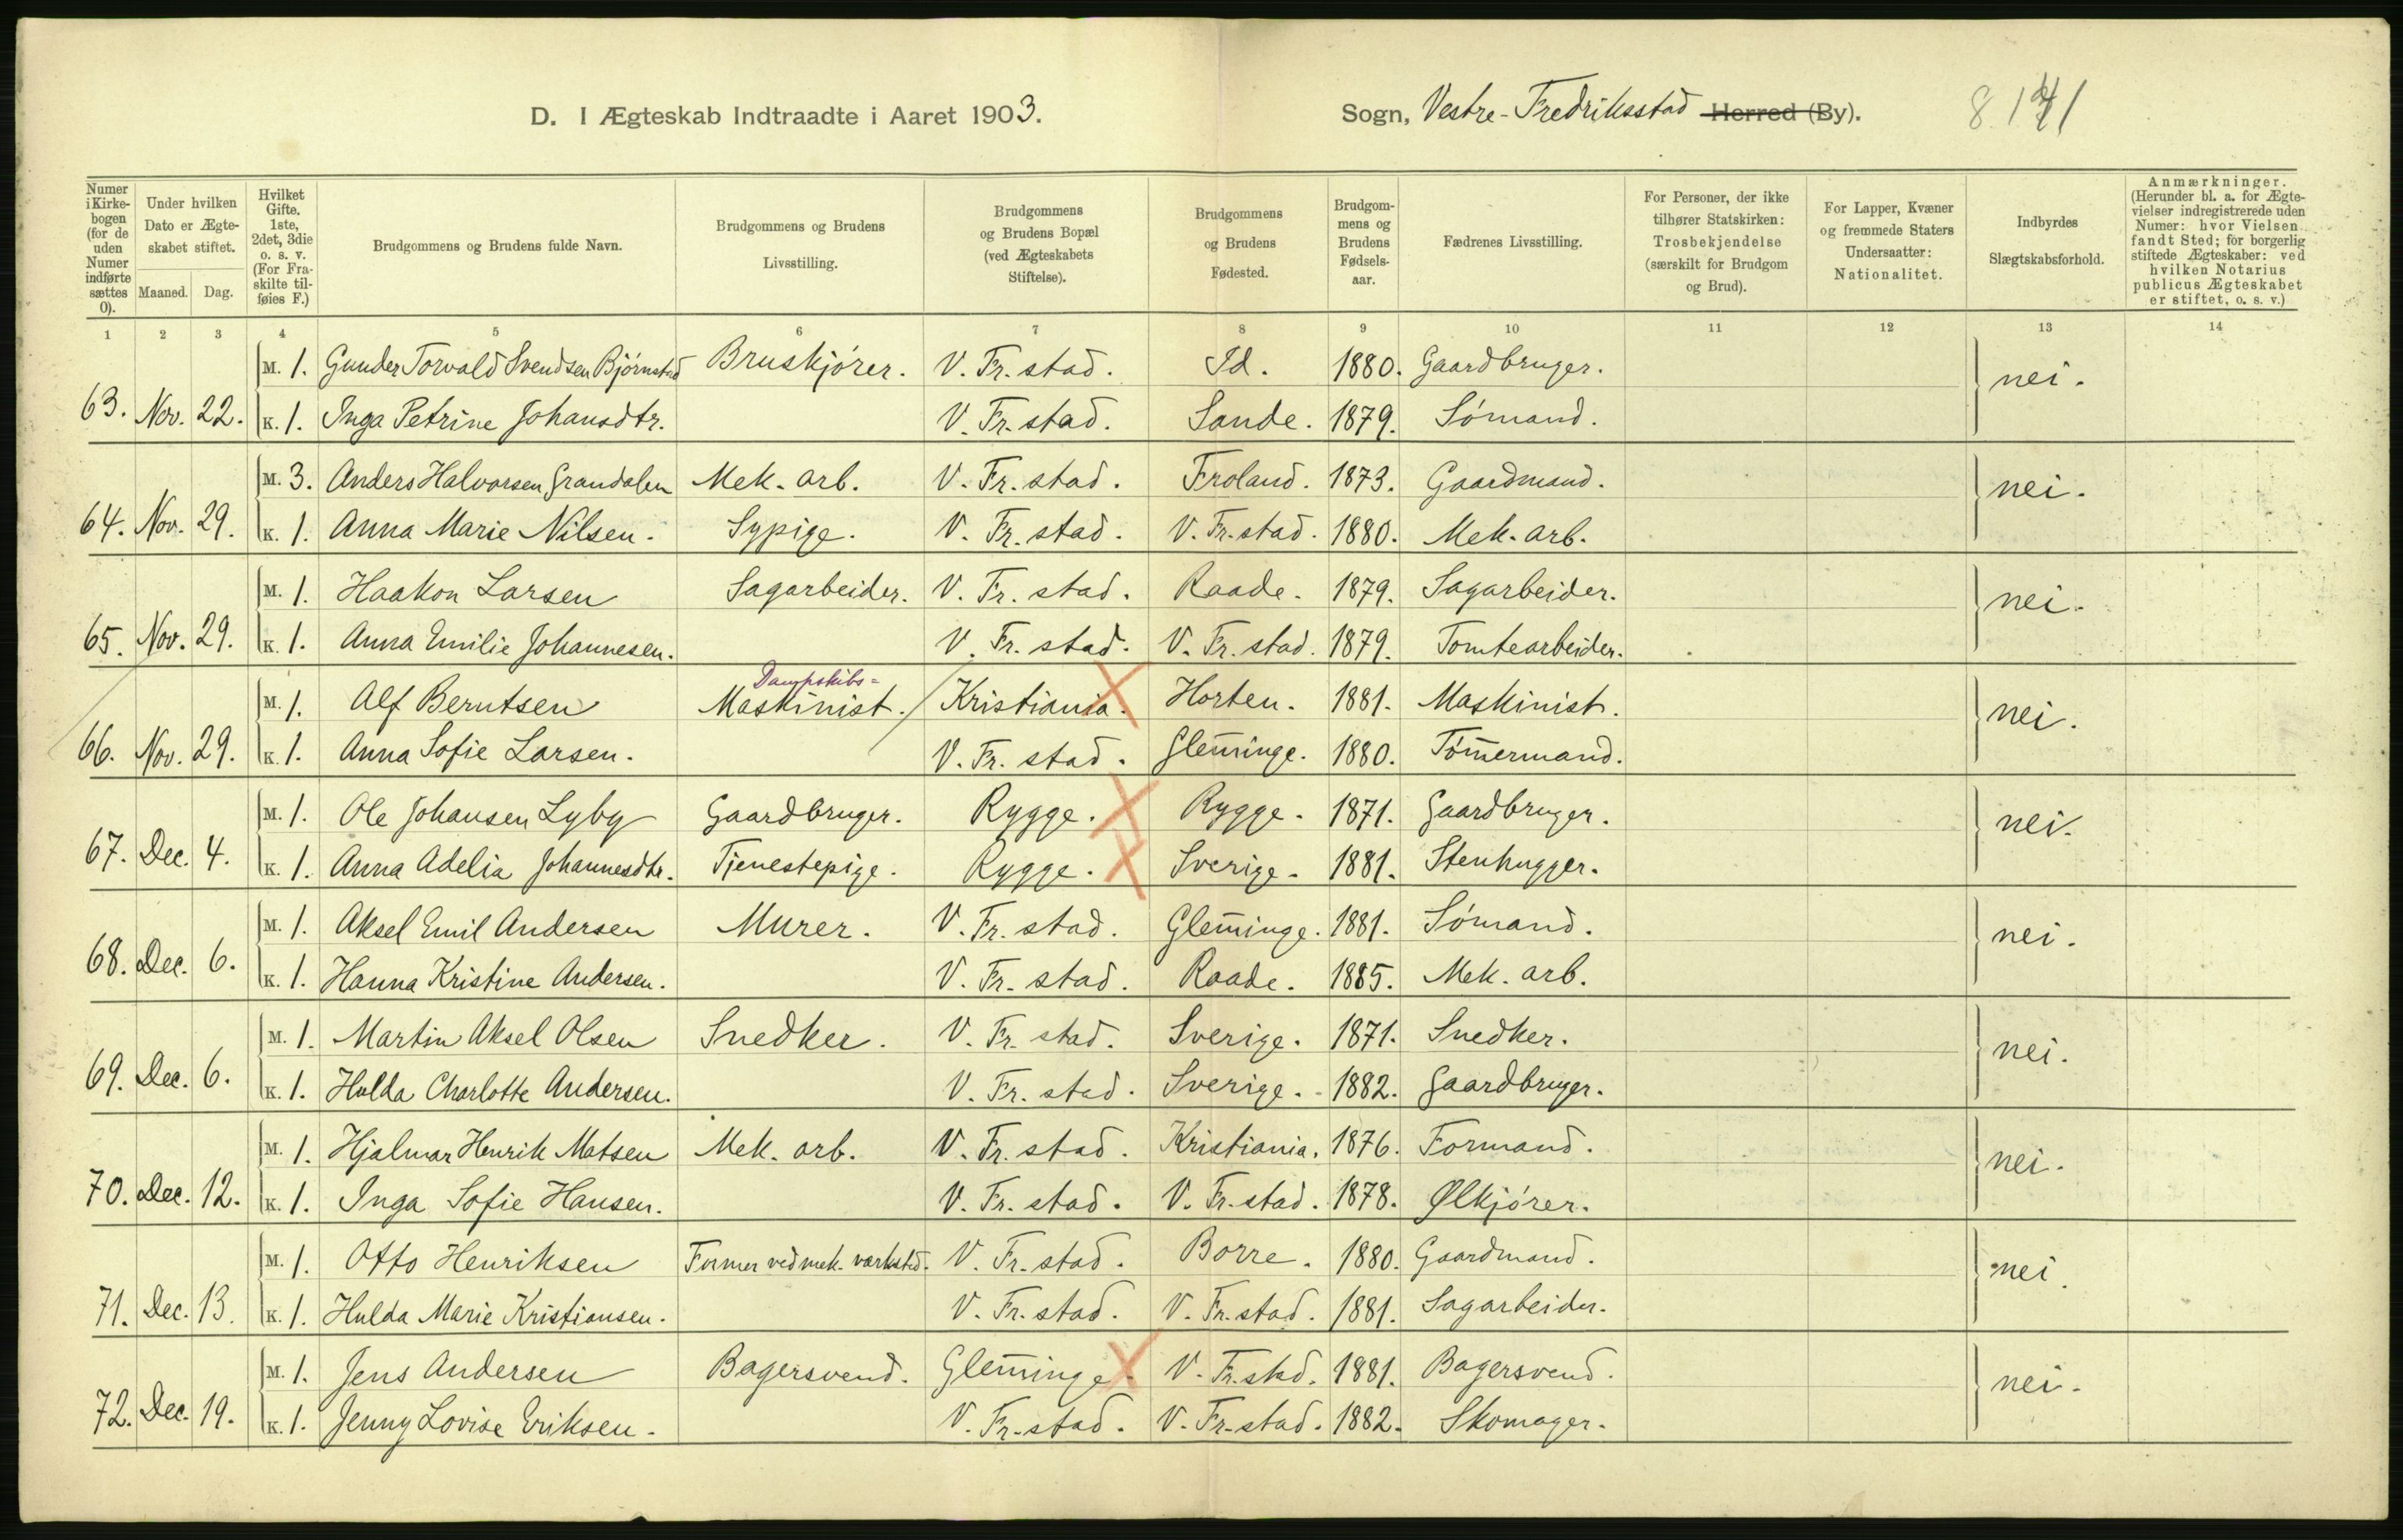 D. I Ægteskab Indtraadte i Aaret 1903.
Sogn, Vestre-Fredriksstad Herred (By).
Numer i Kirke-bogen (for de uden Numer indførte sættes 0).
Under hvilken Dato er Ægte-skabet stiftet.
Maaned. Dag.
Hvilket Gifte. 1ste, 2det, 3die o. s. v. (For Fra-skilte til-føies F.)
Brudgommens og Brudens fulde Navn.
Brudgommens og Brudens Livsstilling.
Brudgommens og Brudens Bopæl (ved Ægteskabets Stiftelse).
Brudgommens og Brudens Fødested.
Brudgom-mens og Brudens Fødsels-aar.
Fædrenes Livsstilling.
For Personer, der ikke tilhører Statskirken: Trosbekjendelse (særskilt for Brudgom og Brud).
For Lapper, Kvæner og fremmede Staters Undersaatter: Nationalitet.
Indbyrdes Slægtskabsforhold.
Anmærkninger. (Herunder bl. a. for Ægte-vielser indregistrerede uden Numer: hvor Vielsen fandt Sted; for borgerlig stiftede Ægteskaber: ved hvilken Notarius publicus Ægteskabet er stiftet, o. s. v.)
1 2 3 4 5 6 7 8 9 10 11 12 13 14
M. 1. Gunder Torvald Svendsen Bjørnstad Bruskjører. V. Fr. stad. Id. 1880. Gaardbruger. nei.
63. Nov. 22. K. 1. Inga Petrine Johansdtr. V. Fr. stad. Sande. 1879. Sømand.
M. 3. Anders Halvorsen Grandalen Mek. arb. V. Fr. stad. Froland. 1873. Gaardmand. nei.
64. Nov. 29. K. 1. Anna Marie Nilsen. Sypige. V. Fr. stad. V. Fr. stad. 1880. Mek. arb.
M. 1. Haakon Larsen Sagarbeider. V. Fr. stad. Raade. 1879. Sagarbeider. nei.
65. Nov. 29. K. 1. Anna Emilie Johannesen. V. Fr. stad. V. Fr. stad. 1879. Tomtearbeider.
Dampskibs=
M. 1. Alf Berntsen Maskinist. Kristiania. Horten. 1881. Maskinist. nei.
66. Nov. 29. K. 1. Anna Sofie Larsen. V. Fr. stad. Glem̄inge. 1880. Tøm̄ermand.
M. 1. Ole Johansen Lyby Gaardbruger. Rygge. Rygge. 1871. Gaardbruger. nei.
67. Dec. 4. K. 1. Anna Adelia Johannesdtr. Tjenestepige. Rygge. Sverige. 1881. Stenhugger.
M. 1. Aksel Emil Andersen Murer. V. Fr. stad. Glem̄inge. 1881. Sømand. nei.
68. Dec. 6. K. 1. Hanna Kristine Andersen. V. Fr. stad. Raade. 1885. Mek. arb.
M. 1. Martin Aksel Olsen Snedker. V. Fr. stad. Sverige. 1871. Snedker. nei.
69. Dec. 6. K. 1. Hulda Charlotte Andersen. V. Fr. stad. Sverige. 1882. Gaardbruger.
M. 1. Hjalmar Henrik Matsen Mek. arb. V. Fr. stad. Kristiania. 1876. Formand. nei.
70. Dec. 12. K. 1. Inga Sofie Hansen. V. Fr. stad. V. Fr. stad. 1878. Ølkjører.
M. 1. Otto Henriksen Former ved mek. varksted. V. Fr. stad. Borre. 1880. Gaardmand. nei.
71. Dec. 13. K. 1. Hulda Marie Kristiansen. V. Fr. stad. V. Fr. stad. 1881. Sagarbeider.
M. 1. Jens Andersen Bagersvend. Glem̄inge. V. Fr. stad. 1881. Bagersvend. nei.
72. Dec. 19. K. 1. Jenny Lovise Eriksen. V. Fr. stad. V. Fr. stad. 1882. Skomager.